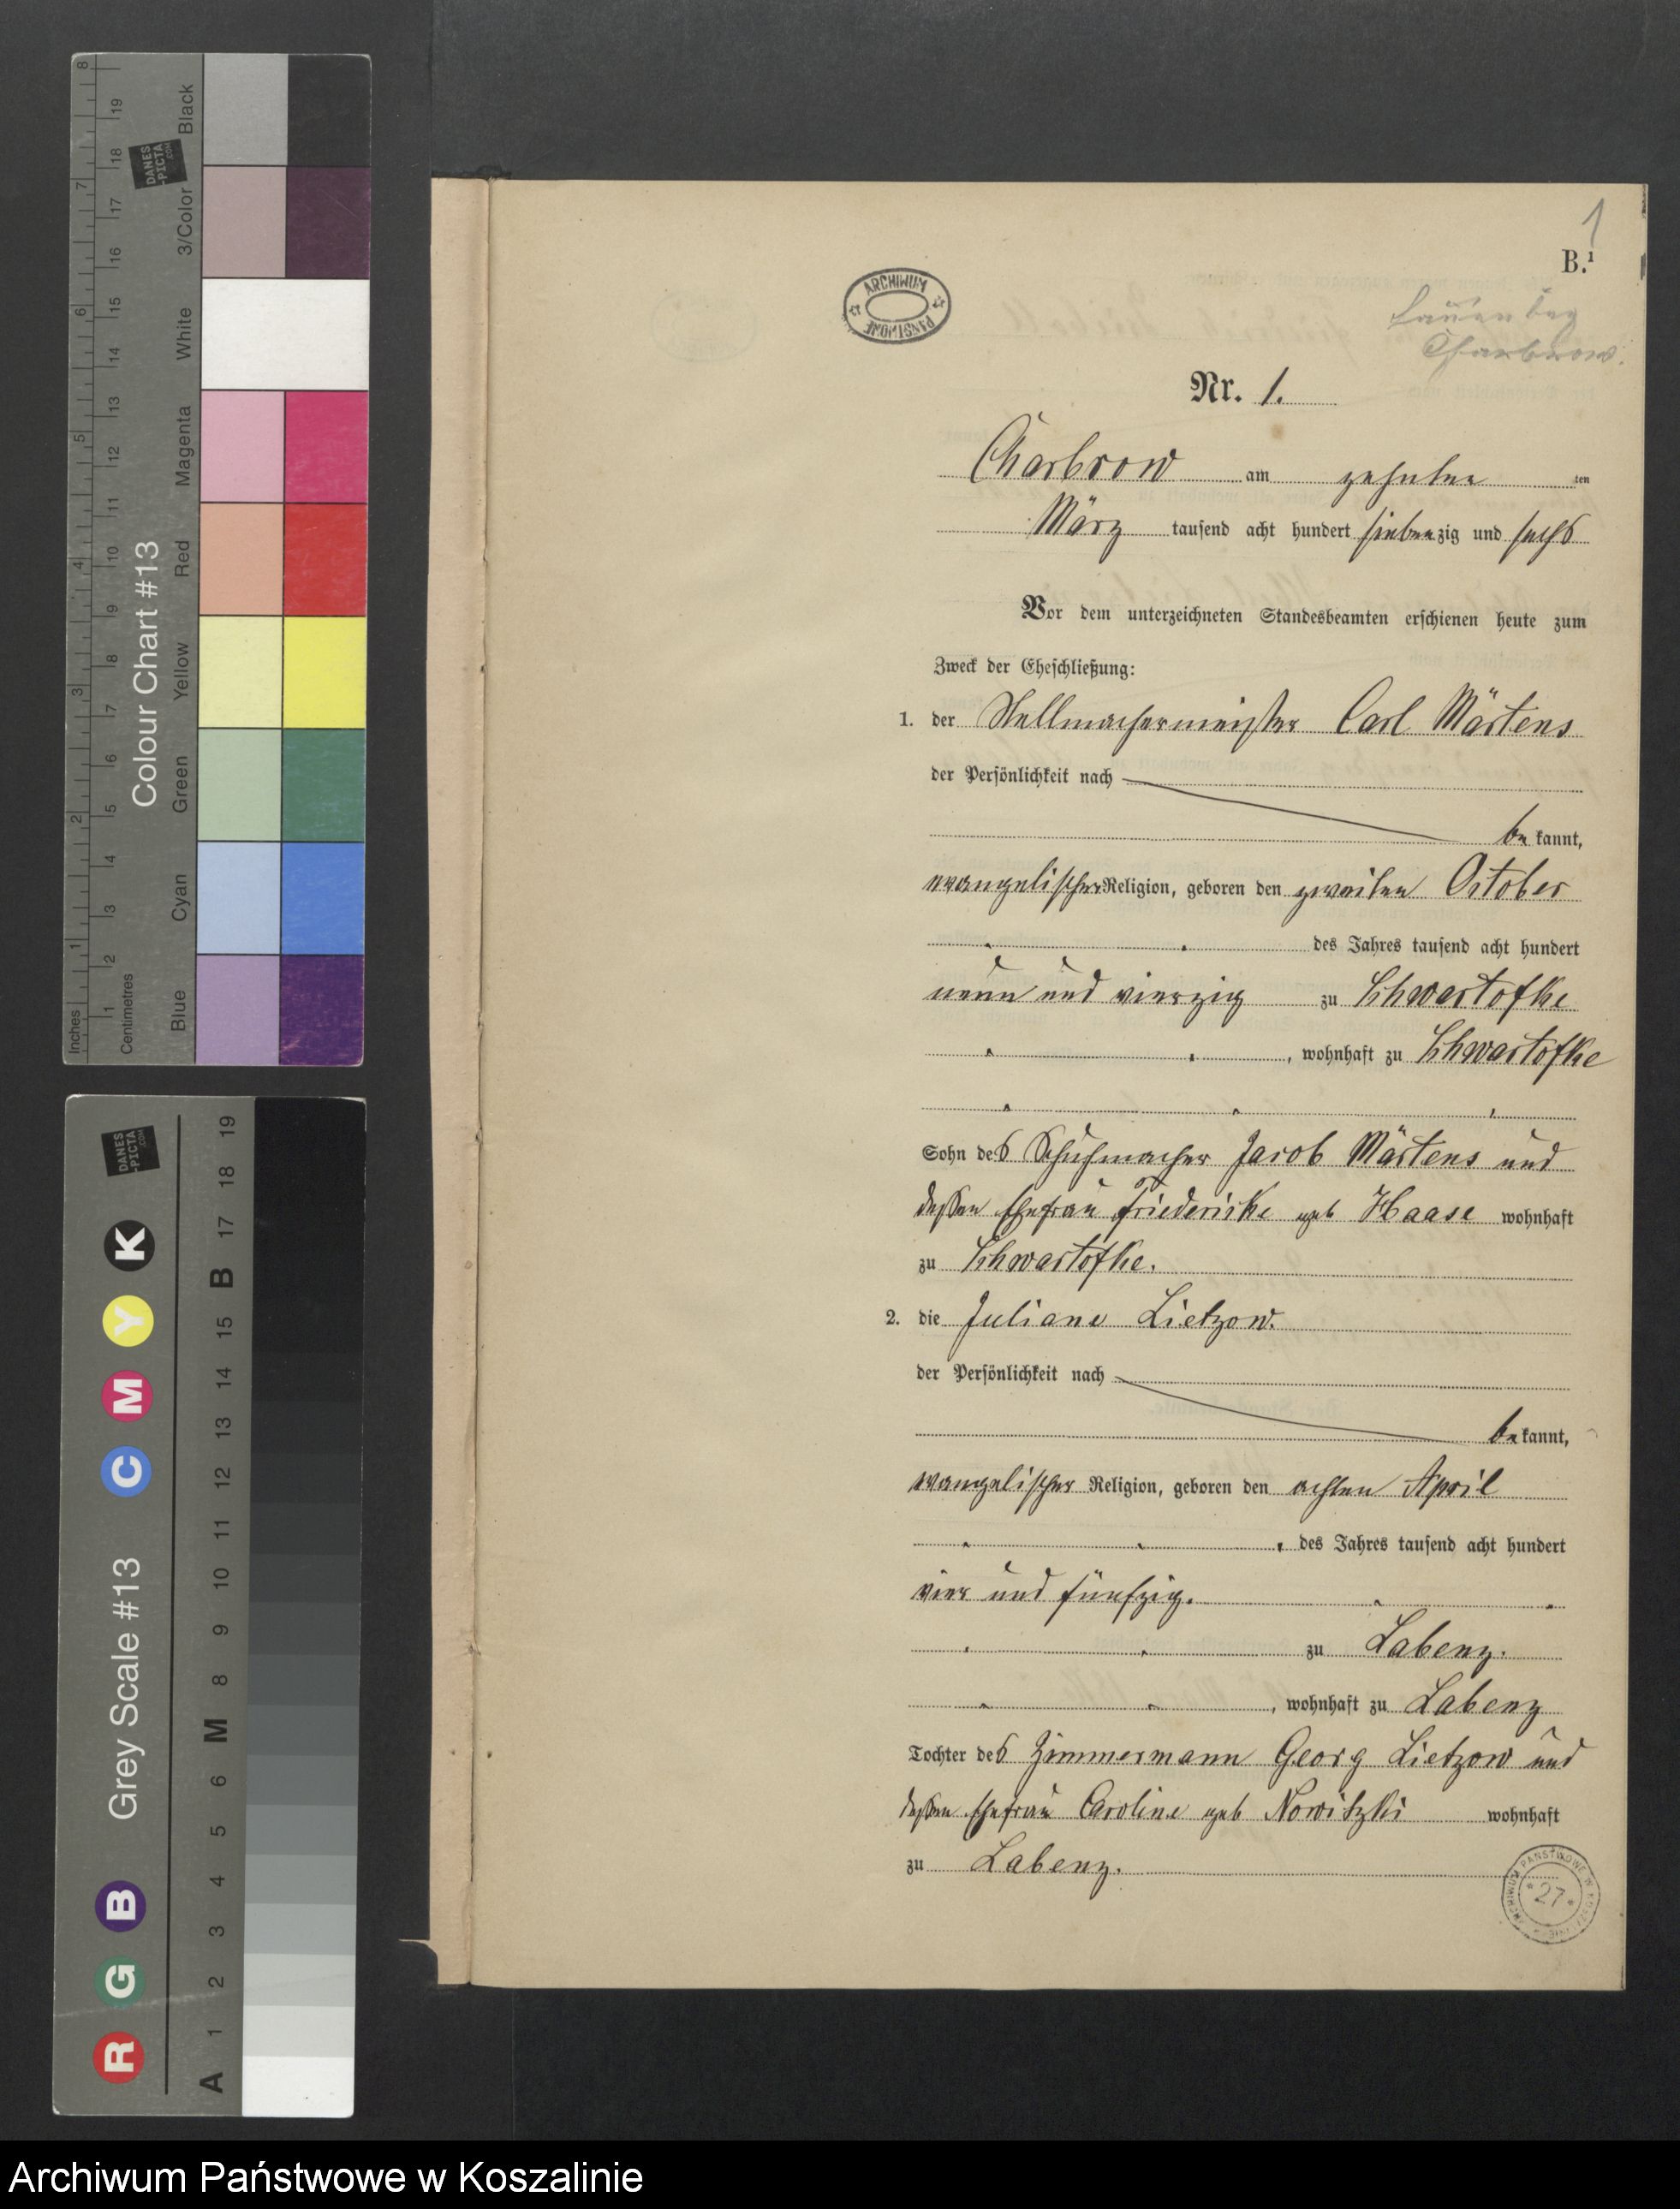 1
B.¹
ARCHIWUM PAŃSTWOWE
Lauenburg
Charbrow.
Nr. 1.
Charbrow am zehnten ten
März tausend acht hundert siebenzig und sechs
Vor dem unterzeichneten Standesbeamten erschienen heute zum
Zweck der Eheschließung:
1. der Stellmachermeister Carl Märtens
der Persönlichkeit nach
be kannt,
evangelischer Religion, geboren den zweiten October
des Jahres tausend acht hundert
neun und vierzig zu Schwartofke
, wohnhaft zu Schwartofke
Sohn des Schuhmacher Jacob Märtens und
dessen Ehefrau Friederike geb Haase wohnhaft
zu Schwartofke.
2. die Juliane Lietzow.
der Persönlichkeit nach
be kannt,
evangelischer Religion, geboren den achten April
des Jahres tausend acht hundert
vier und fünfzig.
zu Labenz.
, wohnhaft zu Labenz
Tochter des Zimmermann Georg Lietzow und
dessen Ehefrau Caroline geb Nowitzki wohnhaft
zu Labenz.
ARCHIWUM PAŃSTWOWE W KOSZALINIE
* 27 *
Colour Chart #13
Inches 1 2 3 4 5 6 7 8
Centimetres 1 2 3 4 5 6 7 8 9 10 11 12 13 14 15 16 17 18 19
Blue Cyan Green Yellow Red Magenta White 3/Color Black
DANES-PICTA.COM
Grey Scale #13
R G B C M Y K
A 1 2 3 4 5 6 M 8 9 10 11 12 13 14 15 B 17 18 19
DANES-PICTA.COM
Archiwum Państwowe w Koszalinie